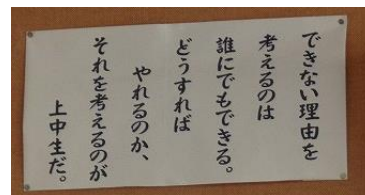 できない理由を
考えるのは
誰にでもできる。
どうすれば
やれるのか、
それを考えるのが
上中生だ。